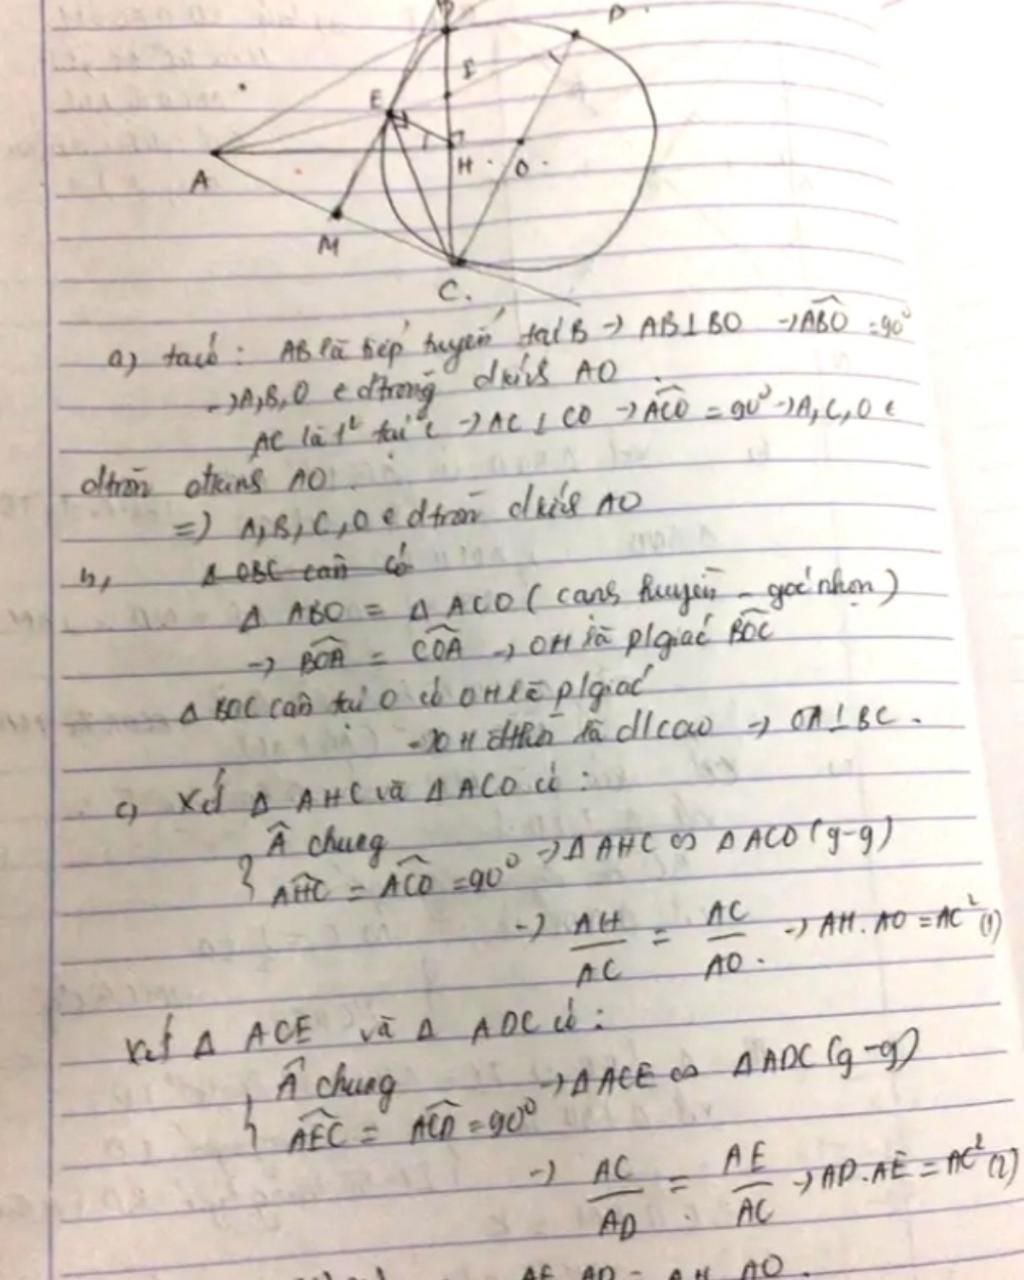 B
D
E
I
A
H
O
M
C.
a) ta có : AB là tiếp tuyến tại B → AB ⊥ BO → \widehat{ABO} = 90⁰
→ A,B,O ∈ đtròng đkính AO.
AC là t² tại C → AC ⊥ CO → \widehat{ACO} = 90⁰ → A,C,O ∈
đtròn đkính AO.
=) A,B,C,O ∈ đtròn đkính AO
b, Δ OBC cân có
Δ ABO = Δ ACO ( cạnh huyền - góc nhọn )
→ \widehat{BOA} = \widehat{COA} → OH là p/giác \widehat{BOC}
Δ BOC cân tại O có OH là p/giác
→ OH đthời là đ/cao → OA ⊥ BC.
c) Xét Δ AHC và Δ ACO có :
Â chung
\widehat{AHC} = \widehat{ACO} = 90⁰ → Δ AHC ∽ Δ ACO (g-g)
→ AH/AC = AC/AO. → AH.AO = AC² (1)
Xét Δ ACE và Δ ADC có :
Â chung → Δ ACE ∽ Δ ADC (g-g)
\widehat{AEC} = \widehat{ACD} = 90⁰
→ AC/AD = AE/AC → AD.AE = AC² (2)
AE AD = AH AO.